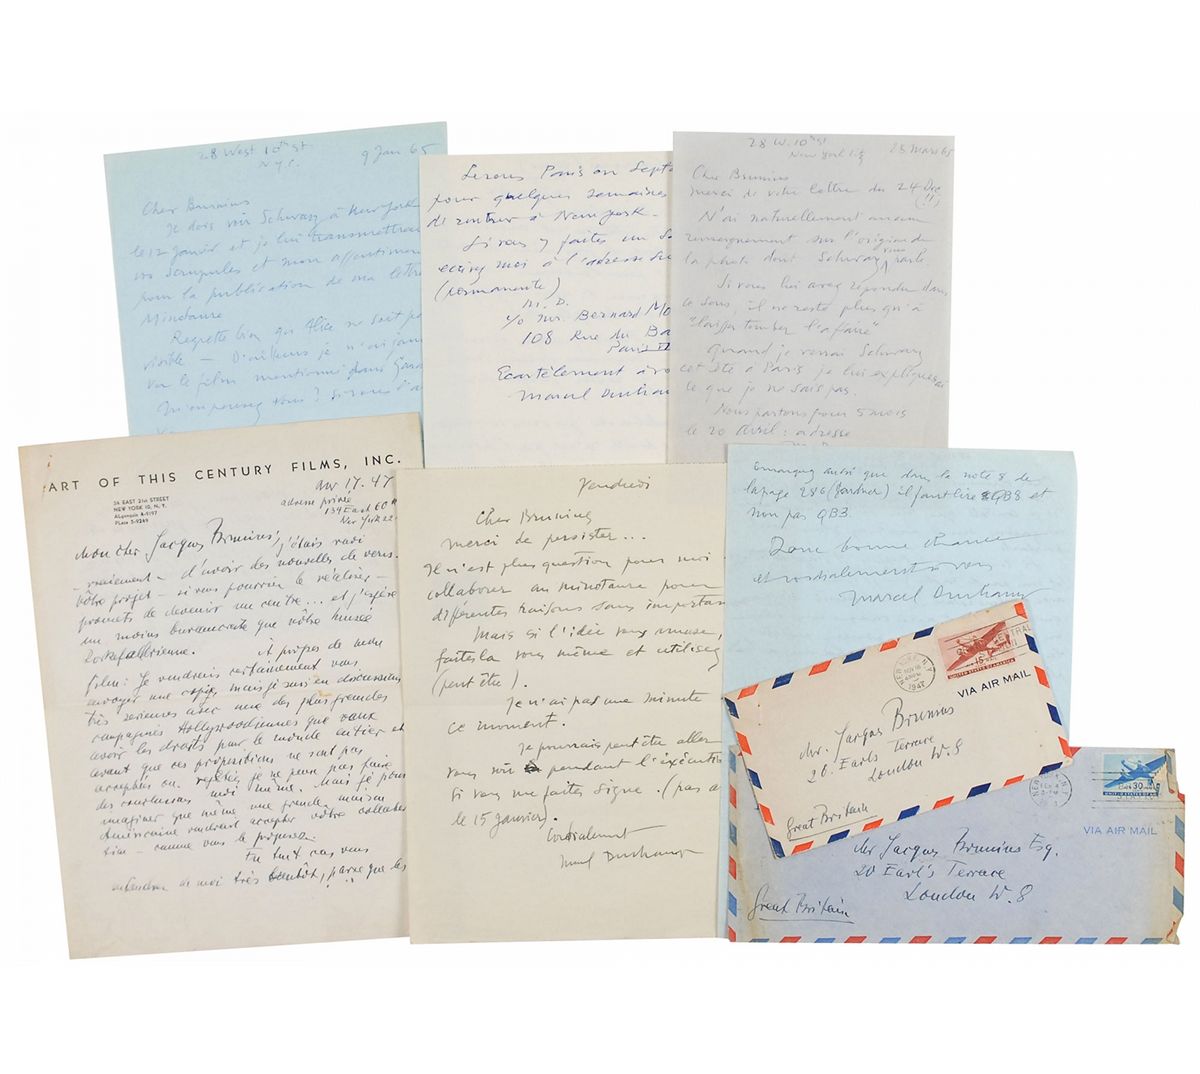 28 West 10th St
N.Y.C.
9 Jan 65
Cher Brunius
Je dois voir Schwarz à New York
le 12 Janvier et je lui transmettrai
vos scrupules et mon assentiment
pour la publication de ma lettre
Minotaure
Regrette bien qu' Alice ne soit pas
visible — D'ailleurs je n'ai jamais
vu le film mentionné dans
M'en pouvez vous ?
Serons Paris en Septe
pour quelques semaines
de rentrer à New York —
Si vous y faites un
écrivez moi à l'adresse
(permanente)
M. D.
c/o Mr. Bernard Mo
108 Rue du Ba
Paris
Ecartèlement à vo
Marcel Duchamp
28 W. 10th St
New York City
28 Mars 65
Cher Brunius
Merci de votre lettre du 24 Dec
(!!)
N'ai naturellement aucun
renseignement sur l'origine de
la photo dont Schwarz vous parle.
Si vous lui avez répondu dans
ce sens, il ne reste plus qu'à
"laisser tomber l'affaire"
Quand je verrai Schwarz
cet été à Paris je lui expliquerai
ce que je ne sais pas.
Nous partons pour 5 mois
le 20 Avril : adresse
ART OF THIS CENTURY FILMS, INC.
34 EAST 21st STREET
NEW YORK 10, N. Y.
ALgonquin 4-9197
PLaza 5-9249
Nov 17. 47
adresse privée
134 East 60th
New York 22
Mon cher Jacques Brunius, j'étais ravi
vraiement — d'avoir des nouvelles de vous.
Vôtre projet — si vous pourriez le réaliser —
promets de devenir un centre... et j'espère
un moins bureaucrate que vôtre musée
Rockefellerienne. A propos de notre
film: Je voudrais certainement vous
envoyer une copie, mais je suis en discussions
très serieuses avec une des plus grandes
compagnies Hollywoodiennes que veux
avoir les droits pour le monde entier et
avant que ces propositions ne sont pas
acceptés ou rejetés je ne peux pas faire
des conclusions moi même. Mais je peus
imaginer que même une grande maison
Américaine voudrait accepter votre collabora
tion — comme vous le proposez.
En tout cas vous
entendrez de moi très bientôt, parce que les
Vendredi
Cher Brunius
Merci de persister...
Il n'est plus question pour moi
collaborer au minotaure pour
différentes raisons sans importan
Mais si l'idée vous amuse,
faites la vous même et utilisez
(peut être).
Je n'ai pas une minute
ce moment.
Je pourrais peut être aller
vous voir pendant l'exécution
si vous me faites signe. (pas a
le 15 janvier).
Cordialement
Marcel Duchamp
Remarquez aussi que dans la note 8 de
la page 286 (Gardner) il faut lire QB8 et
non pas QB3
Donc bonne chance
et cordialement à vous
Marcel Duchamp
NEW YORK, N.Y.
NOV 18
1947
15¢
UNITED STATES OF AMERICA
VIA AIR MAIL
Mr. Jacques Brunius
20. Earls Terrace
London W. 8
Great Britain
30¢
UNITED STATES OF AMERICA
VIA AIR MAIL
Mr Jacques Brunius Esq.
20 Earl's Terrace
London W. 8
Great Britain